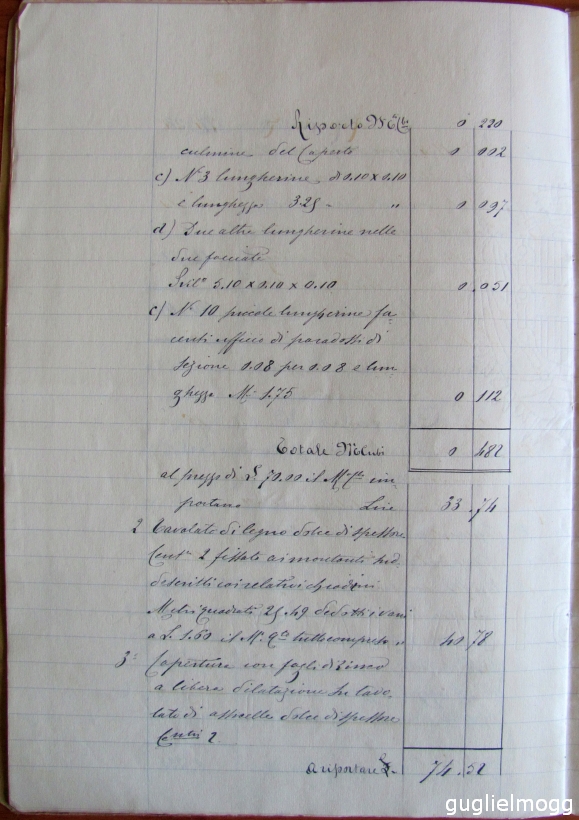 Riporto M.Cbi 0 220
culmine del Coperto 0 002
c) N° 3 lungherine di 0.10 x 0.10
e lunghezza 3.25 - " 0 097
d) Due altre lungherine nelle
due facciate
Svil° 5.10 x 0.10 x 0.10 0.051
e) N° 10 piccole lungherine fa-
centi ufficio di paradossi di
sezione 0.08 per 0.08 e lun
ghezza M. 1.75 0 112
Totale MCubi 0 482
al prezzo di £ 70.00 il M° C° im-
portano Lire 33.74
2 Tavolato di legno dolce di spessore
Centri 2 fissato ai montanti sud
descritti coi relativi chiodini
Metri quadrati 25.49 dedotti i vani
a L. 1.60 il M° Q° tutto compreso " 40 78
3° Copertura con fogli di zinco
a libera dilatazione su tavo
lato di assicelle dolce di spessore
Centri 2
A riportare £. 74.52
guglielmogg